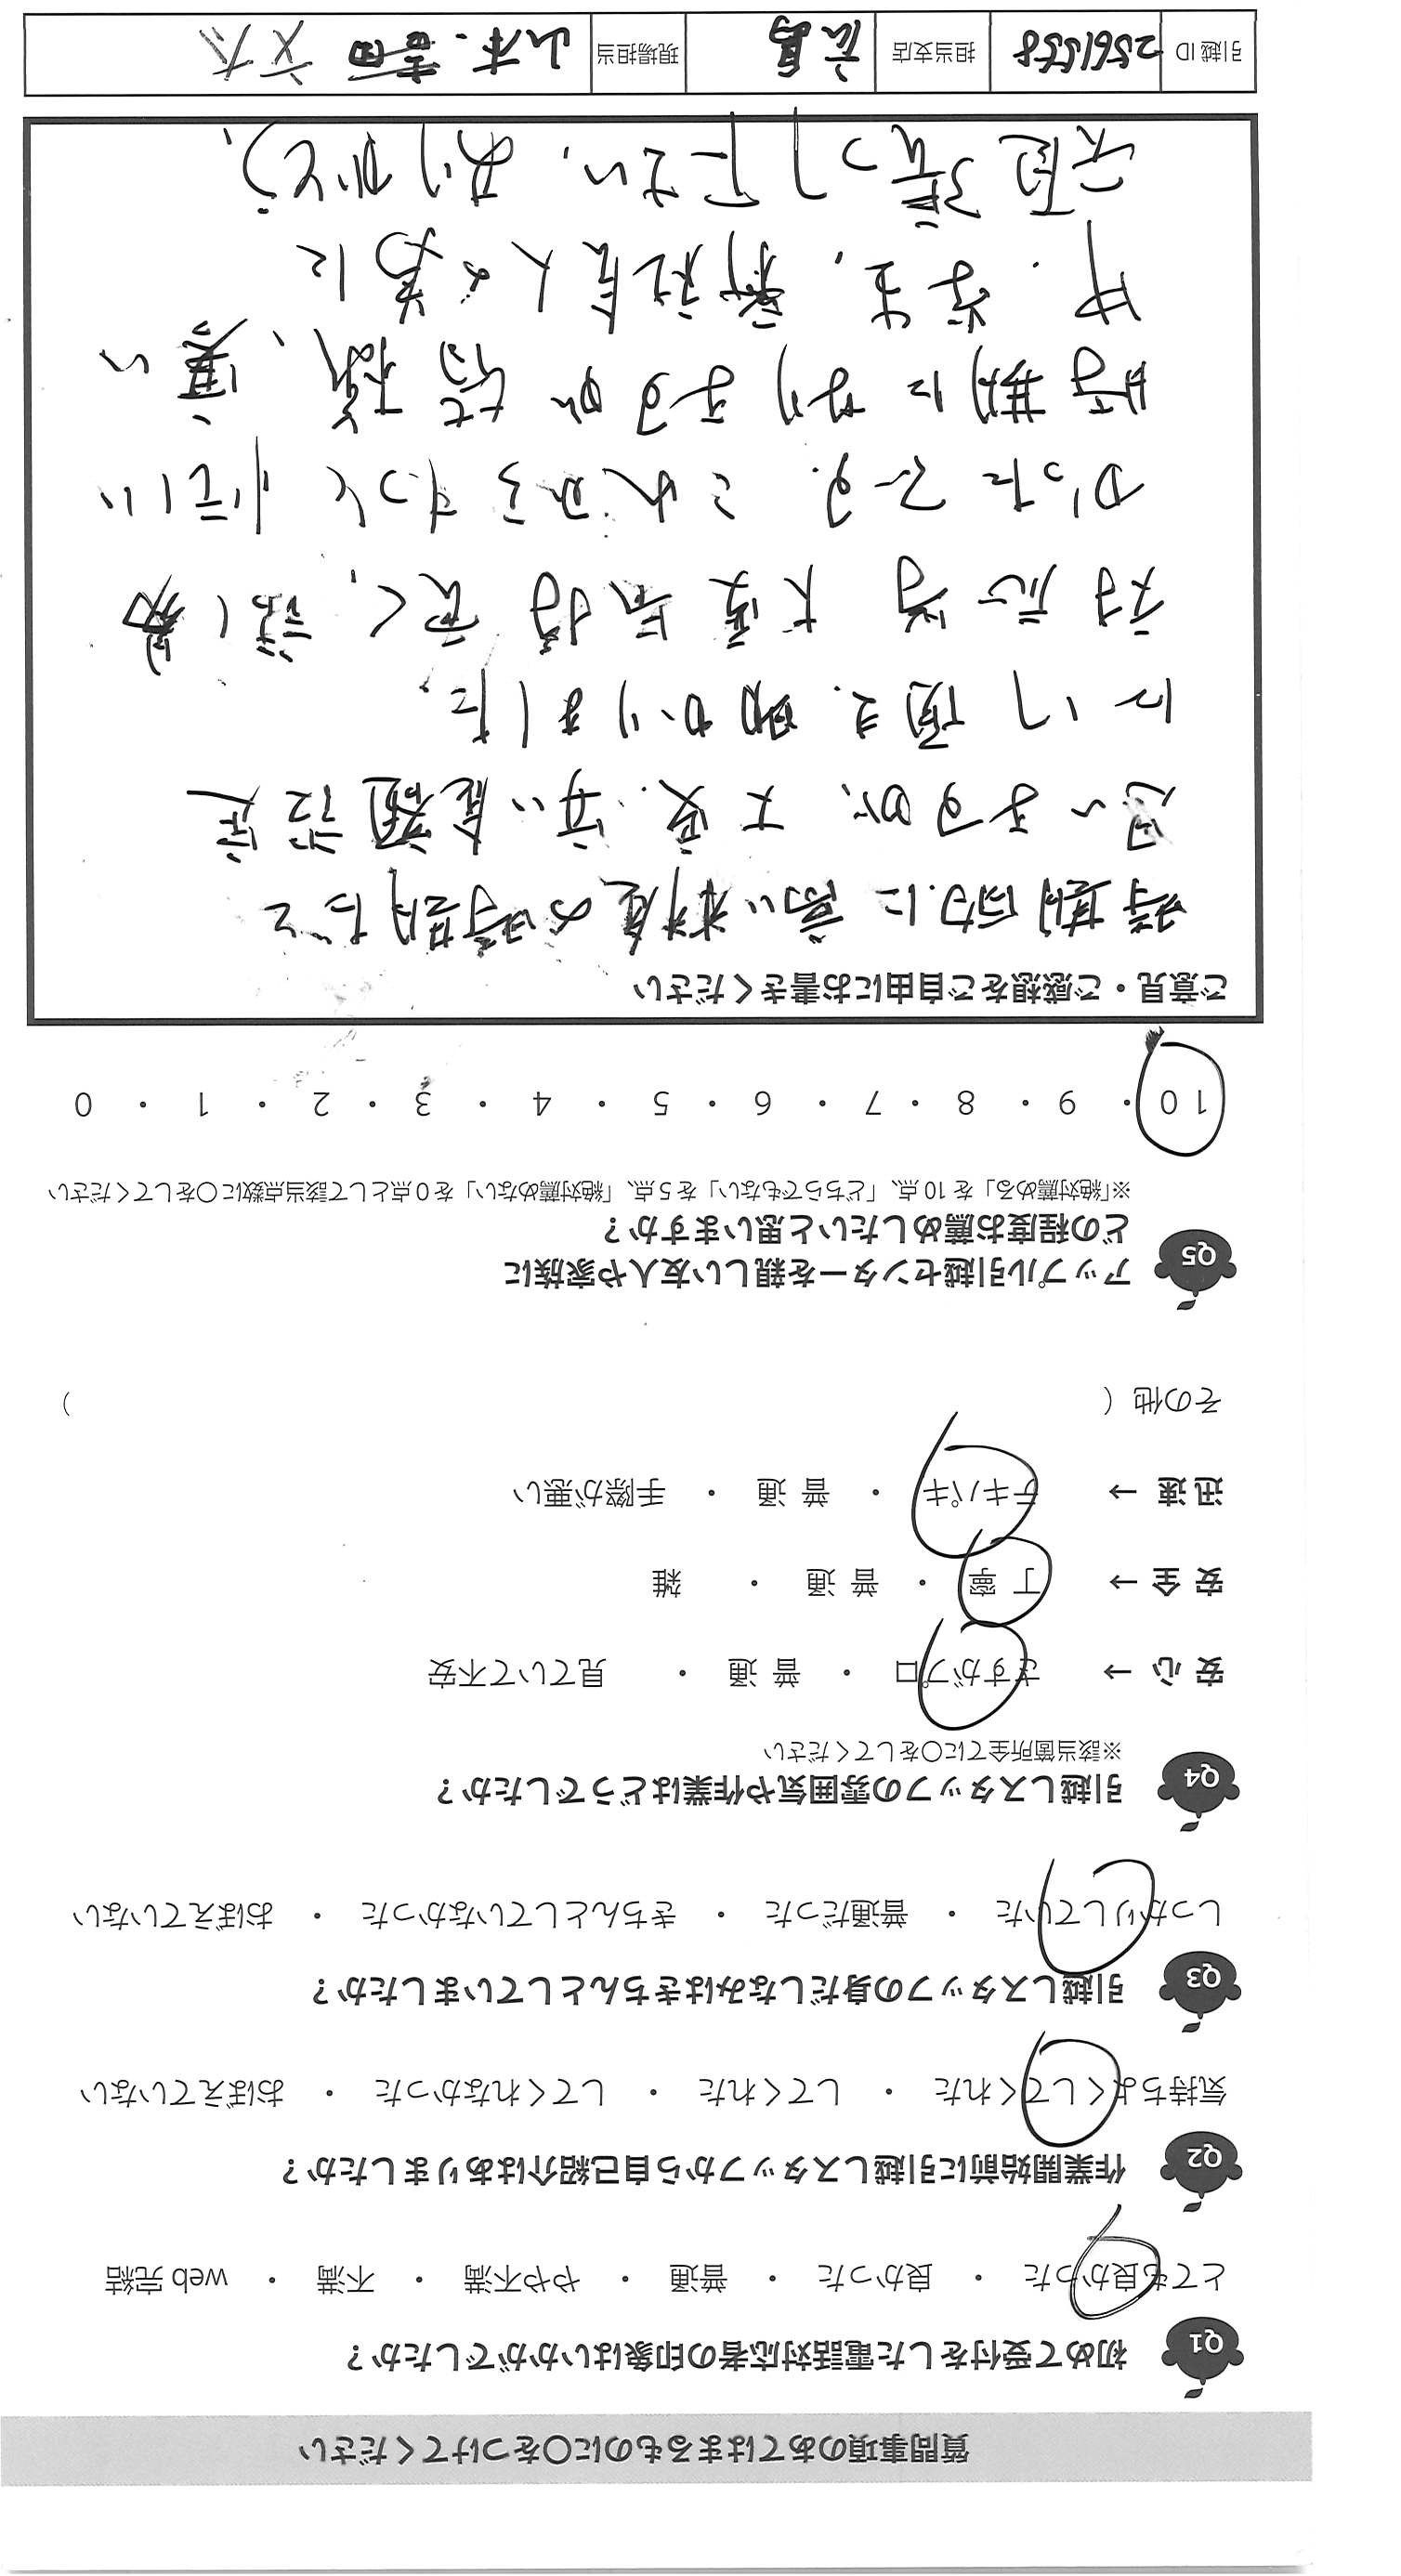 質問事項のあてはまるものに○をつけてください
Q1 初めて受付をした電話対応者の印象はいかがでしたか？
とても良かった ・ 良かった ・ 普通 ・ やや不満 ・ 不満 ・ web 完結
Q2 作業開始前に引越しスタッフから自己紹介はありましたか？
気持ちよくしてくれた ・ してくれた ・ してくれなかった ・ おぼえていない
Q3 引越しスタッフの身だしなみはきちんとしていましたか？
しっかりしていた ・ 普通だった ・ きちんとしていなかった ・ おぼえていない
Q4 引越しスタッフの雰囲気や作業はどうでしたか？
※該当箇所全てに○をしてください
安 心 → さすがプロ ・ 普 通 ・ 見ていて不安
安 全 → 丁 寧 ・ 普 通 ・ 雑
迅 速 → テキパキ ・ 普 通 ・ 手際が悪い
その他（ ）
Q5 アップル引越センターを親しい友人や家族に
どの程度お薦めしたいと思いますか？
※「絶対薦める」を 10 点、「どちらでもない」を 5 点、「絶対薦めない」を 0 点として該当点数に○をしてください
10 ・ 9 ・ 8 ・ 7 ・ 6 ・ 5 ・ 4 ・ 3 ・ 2 ・ 1 ・ 0
ご意見・ご感想をご自由にお書きください
時期的に高い料金の時期だと
思いますが、大変安い金額設定
にして頂き助かりました。
対応等大変気持良く、話し易
かったです。これからすごく忙しい
時期になりますが結構、寒い
中、学生、新社会人の為に
頑張って下さい、ありがとう。
引越 ID 2561558 担当支店 広島 現場担当 山本・吉田